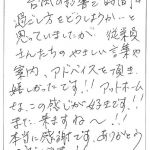 台風の影響で時間の
過ごし方をどうしようか…と
思っていましたが、従業員
さんたちのやさしい言葉や
案内、アドバイスを頂き
嬉しかったです!!アットホーム
なこの感じが好きです!!
また来ますね〜!!
本当に感謝です。ありがとう